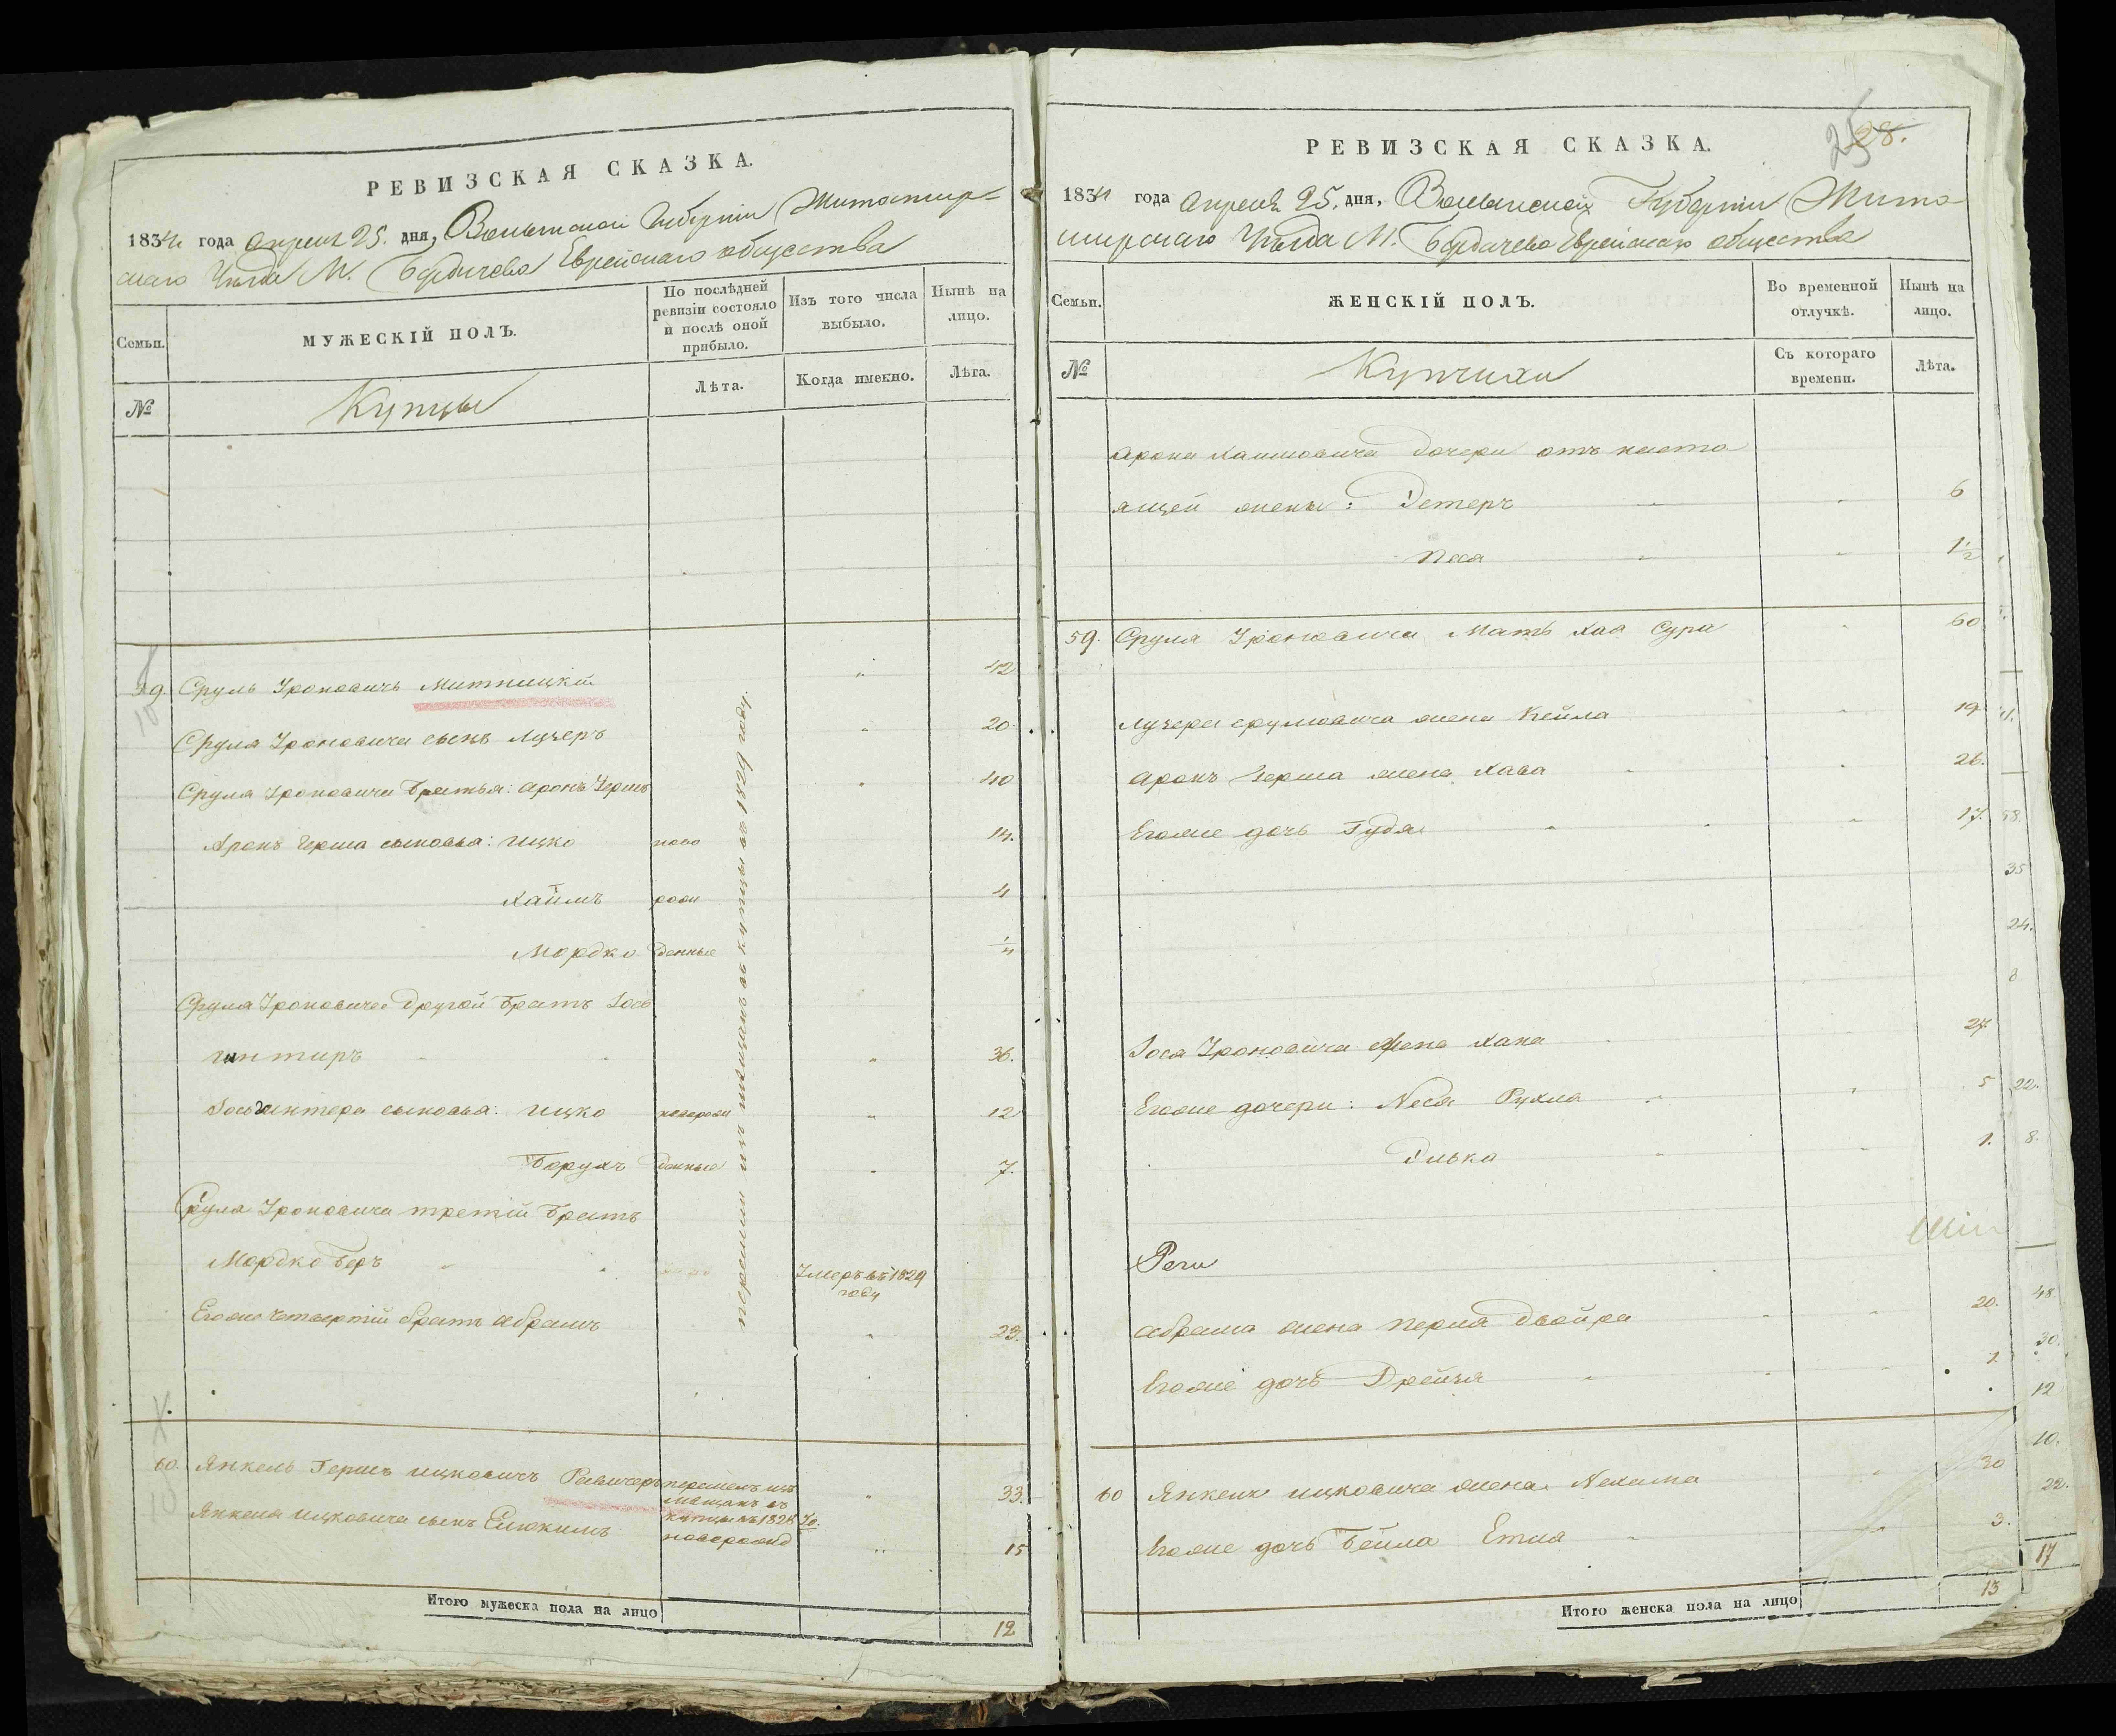 РЕВИЗСКАЯ СКАЗКА.
1834 года апреля 25. дня, Волынской Губерніи Житомир-
скаго Уѣзда М. Бердичева Еврейскаго общества
Семьи.
МУЖЕСКІЙ ПОЛЪ.
По послѣдней ревизіи состояло и послѣ оной прибыло.
Изъ того числа выбыло.
Нынѣ на лицо.
№
Купцы
Лѣта.
Когда именно.
Лѣта.
59. Сруль Уроновичъ Митницкій " 42
Сруля Уроновича сынъ Лузеръ " 20
Сруля Уроновича Братья: Аронъ Гершъ " 40
Аронъ Герша сыновья: Ицко ново 14.
Хаимъ рож 4
Мордко денные 1/4
Сруля Уроновича другой братъ Іось
Гинтиръ " 36.
Іось Гинтера сыновья: Ицко новорож " 12
Борухъ денные " 7.
Сруля Уроновича третій братъ
Мордко Беръ Умеръ въ 1829 году
Егоже четвертій братъ Абрамъ " 23.
перешли изъ мѣщанъ въ купцы въ 1829 году.
60. Янкель Гершъ Ицковичъ перешелъ изъ мѣщанъ въ купцы въ 1826 го. " 33.
Янкеля Ицковича сынъ Елюкимъ новорожд " 15
Итого мужеска пола на лицо 12
РЕВИЗСКАЯ СКАЗКА.
25 28.
1834 года апреля 25. дня, Волынской Губерніи Жито-
мирскаго Уѣзда М. Бердичева Еврейскаго общества
Семьи.
ЖЕНСКІЙ ПОЛЪ.
Во временной отлучкѣ.
Нынѣ на лицо.
№
Купчихи
Съ котораго времени.
Лѣта.
Арона Хаимовича дочери отъ насто
ящей жены: Эстеръ " 6
Песя " 1 1/2
59. Сруля Уроновича Мать Хая Сура " 60
Лузера Срулювича жена Кейла " 19
Аронъ Герша жена Хава " 26.
Егоже дочь Гудя " 17.
Іося Уроновича жена Хана 27
Егоже дочери: Неся Рухля " 5
" 1.
Абрама жена Перля Двойра " 20.
Егоже дочь Дрейзя " 1.
60 Янкеля Ицковича жена Нехама " 30
Егоже дочь Бейла Етля " 3.
Итого женска пола на лицо 13
35
24.
22.
8.
48.
30.
12
10.
22.
17